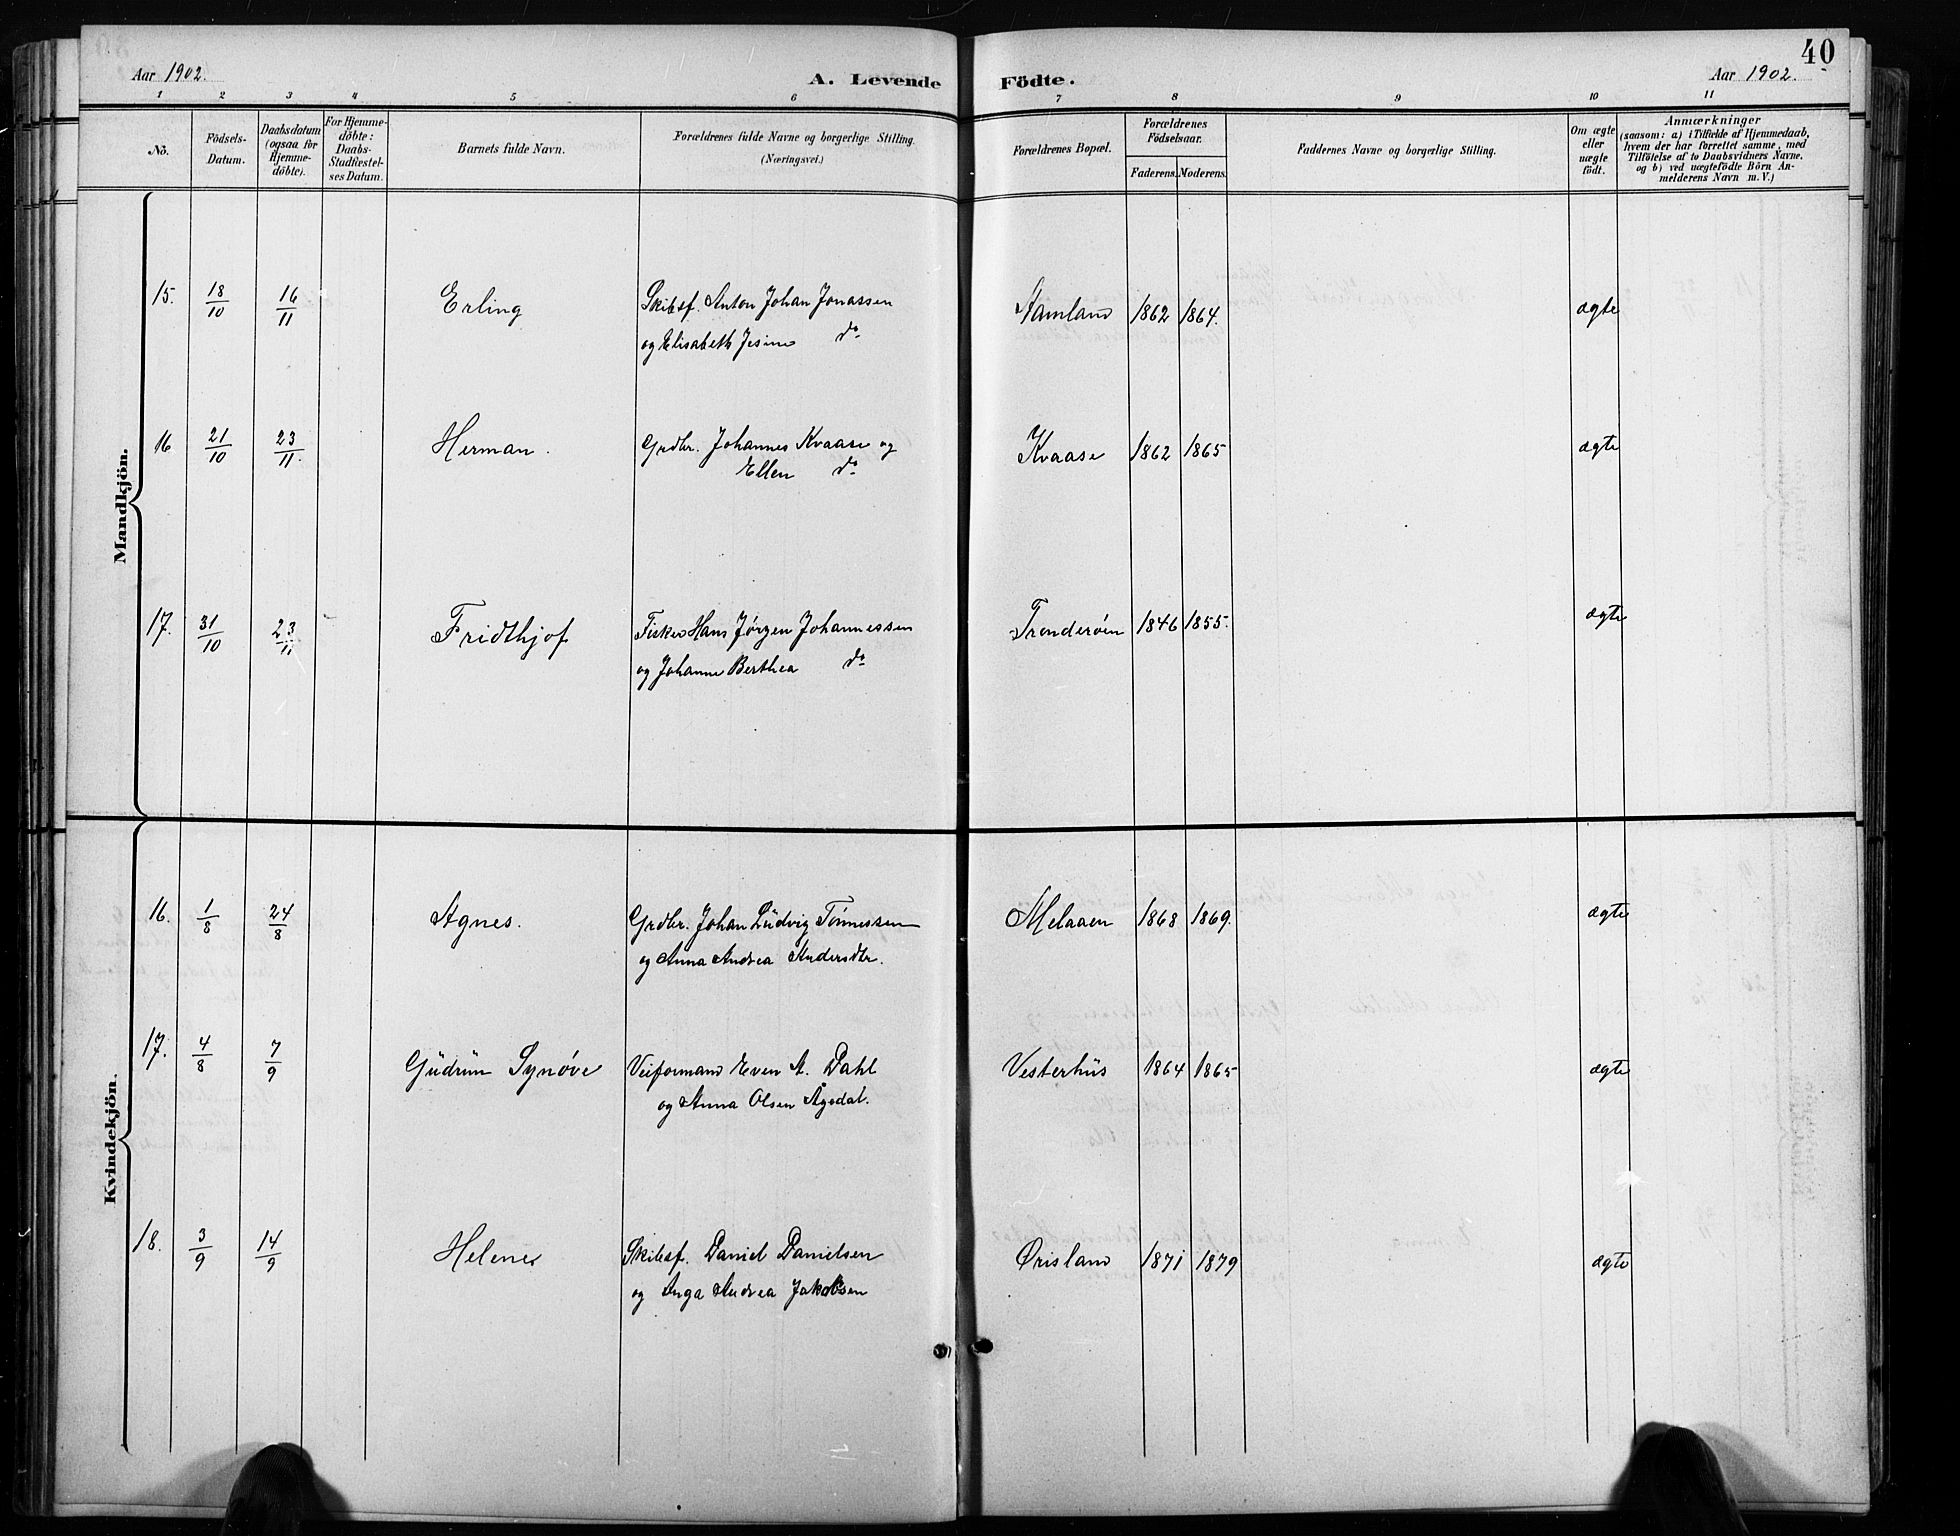 40
Aar 1902.
A. Levende Födte.
Aar 1902.
1 2 3 4 5 6 7 8 9 10 11
No.
Födsels-Datum.
Daabsdatum (ogsaa for Hjemme-döbte).
For Hjemme-döbte: Daabs-Stadfæstel-ses Datum.
Barnets fulde Navn.
Forældrenes fulde Navne og borgerlige Stilling. (Næringsvei.)
Forældrenes Bopæl.
Forældrenes Födselsaar.
Faderens. Moderens.
Faddernes Navne og borgerlige Stilling.
Om ægte eller uægte födt.
Anmærkninger
(saasom: a) i Tilfælde af Hjemmedaab,
hvem der har forrettet samme, med
Tilföielse af to Daabsvidners Navne.
og b) ved uægtefödte Börn An-
melderens Navn m. V.)
Mandkjön.
15. 18/10 16/11 Erling Skibsf. Anton Johan Jonassen Samland 1862 1864. ægte
og Elisabeth Jesine do
16 21/10 23/11. Herman. Grdbr. Johannes Kvaase og Kvaase 1862 1865 ægte
Ellen do
17. 31/10 23/11 Fridthjof Fisker Hans Jørgen Johannessen Trenderöen 1846 1855. ægte
og Johanne Berthea do
Kvindekjön.
16. 1/8 24/8 Agnes. Grdbr. Johan Ludvig Tönnessen Melaaen 1868 1869. ægte
og Anna Andrea Andersdtr.
17. 4/8 7/9 Gudrun Synøve Veiformand Even A. Dahl Vesterhus 1864 1865 ægte
og Anna Olsen Ågedal.
18. 3/9 14/9 Helene Skibsf. Daniel Danielsen Ørisland 1871 1879 ægte
og Inga Andrea Jakobsen